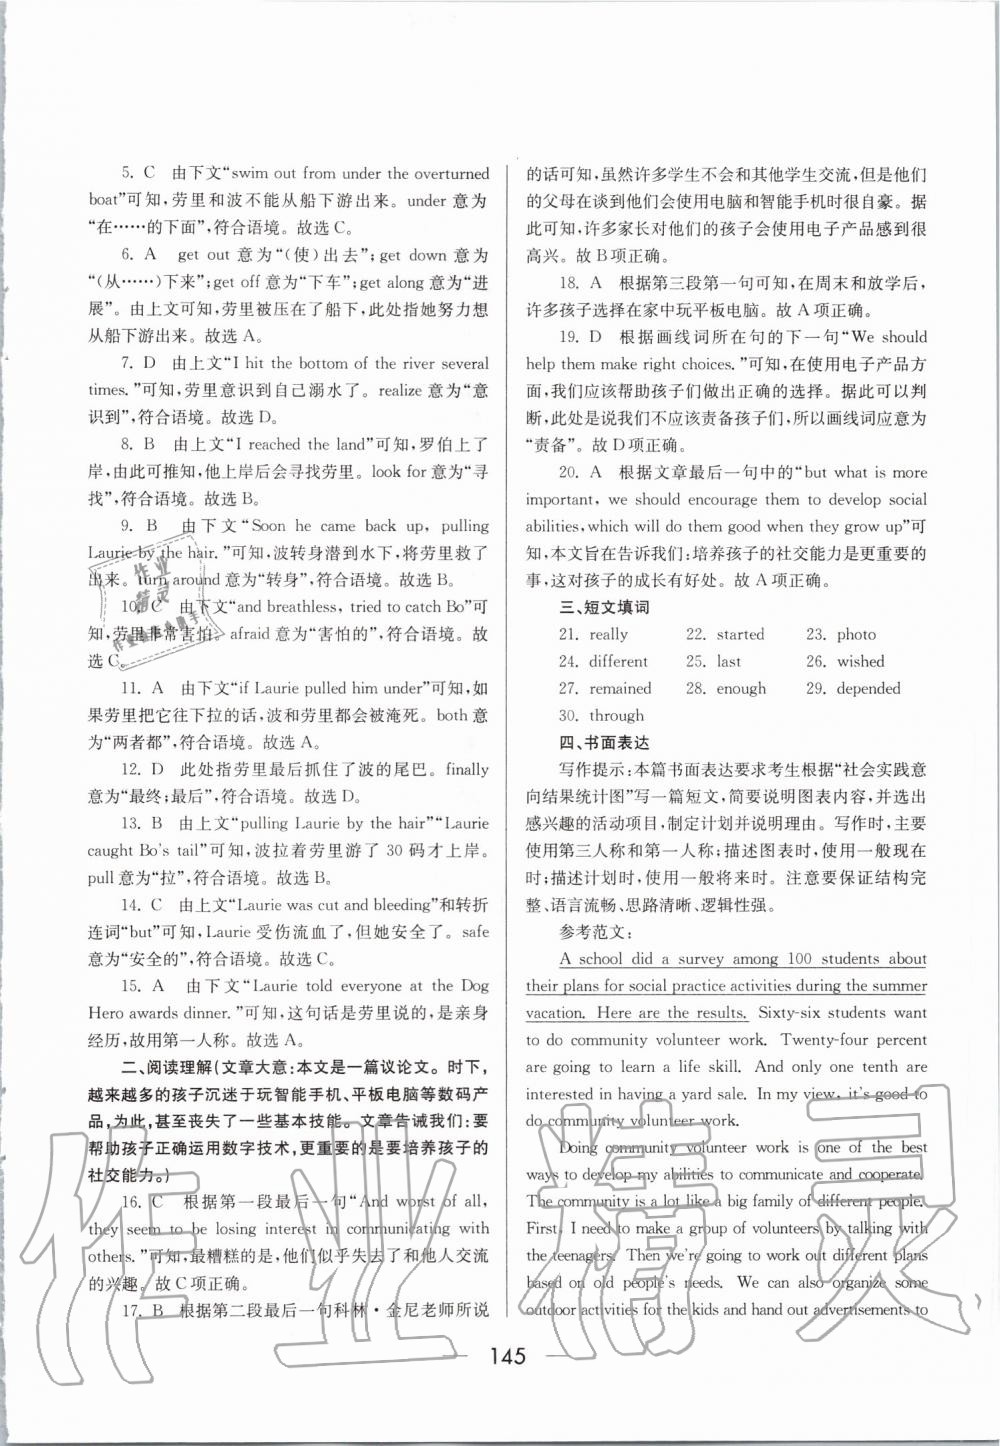 5. C 由下文“swim out from under the overturned
boat”可知,劳里和波不能从船下游出来。under 意为
“在……的下面”,符合语境。故选 C。
6. A get out 意为“(使)出去”;get down 意为
“(从……)下来”;get off 意为“下车”;get along 意为“进
展”。由上文可知,劳里被压在了船下,此处指她努力想
从船下游出来。故选 A。
7. D 由上文“I hit the bottom of the river several
times.”可知,劳里意识到自己溺水了。realize 意为“意
识到”,符合语境。故选 D。
8. B 由上文“I reached the land”可知,罗伯上了
岸,由此可推知,他上岸后会寻找劳里。look for 意为“寻
找”,符合语境。故选 B。
9. B 由下文“Soon he came back up, pulling
Laurie by the hair.”可知,波转身潜到水下,将劳里救了
出来。turn around 意为“转身”,符合语境。故选 B。
10. C 由下文“and breathless, tried to catch Bo”可
知,劳里非常害怕。afraid 意为“害怕的”,符合语境。故
选 C。
11. A 由下文“if Laurie pulled him under”可知,如
果劳里把它往下拉的话,波和劳里都会被淹死。both 意
为“两者都”,符合语境。故选 A。
12. D 此处指劳里最后抓住了波的尾巴。finally
意为“最终;最后”,符合语境。故选 D。
13. B 由上文“pulling Laurie by the hair”“Laurie
caught Bo's tail”可知,波拉着劳里游了 30 码才上岸。
pull 意为“拉”,符合语境。故选 B。
14. C 由上文“Laurie was cut and bleeding”和转折
连词“but”可知,Laurie 受伤流血了,但她安全了。safe
意为“安全的”,符合语境。故选 C。
15. A 由下文“Laurie told everyone at the Dog
Hero awards dinner.”可知,这句话是劳里说的,是亲身
经历,故用第一人称。故选 A。
二、阅读理解(文章大意:本文是一篇议论文。时下,
越来越多的孩子沉迷于玩智能手机、平板电脑等数码产
品,为此,甚至丧失了一些基本技能。文章告诫我们:要
帮助孩子正确运用数字技术,更重要的是要培养孩子的
社交能力。)
16. C 根据第一段最后一句“And worst of all,
they seem to be losing interest in communicating with
others.”可知,最糟糕的是,他们似乎失去了和他人交流
的兴趣。故 C 项正确。
17. B 根据第二段最后一句科林·金尼老师所说
的话可知,虽然许多学生不会和其他学生交流,但是他们
的父母在谈到他们会使用电脑和智能手机时很自豪。据
此可知,许多家长对他们的孩子会使用电子产品感到很
高兴。故 B 项正确。
18. A 根据第三段第一句可知,在周末和放学后,
许多孩子选择在家中玩平板电脑。故 A 项正确。
19. D 根据画线词所在句的下一句“We should
help them make right choices.”可知,在使用电子产品方
面,我们应该帮助孩子们做出正确的选择。据此可以判
断,此处是说我们不应该责备孩子们,所以画线词应意为
“责备”。故 D 项正确。
20. A 根据文章最后一句中的“but what is more
important, we should encourage them to develop social
abilities,which will do them good when they grow up”可
知,本文旨在告诉我们:培养孩子的社交能力是更重要的
事,这对孩子的成长有好处。故 A 项正确。
三、短文填词
21. really 22. started 23. photo
24. different 25. last 26. wished
27. remained 28. enough 29. depended
30. through
四、书面表达
写作提示:本篇书面表达要求考生根据“社会实践意
向结果统计图”写一篇短文,简要说明图表内容,并选出
感兴趣的活动项目,制定计划并说明理由。写作时,主要
使用第三人称和第一人称;描述图表时,使用一般现在
时;描述计划时,使用一般将来时。注意要保证结构完
整、语言流畅、思路清晰、逻辑性强。
参考范文:
A school did a survey among 100 students about
their plans for social practice activities during the summer
vacation. Here are the results. Sixty-six students want
to do community volunteer work. Twenty-four percent
are going to learn a life skill. And only one tenth are
interested in having a yard sale. In my view, it's good to
do community volunteer work.
Doing community volunteer work is one of the best
ways to develop my abilities to communicate and cooperate.
The community is a lot like a big family of different people.
First, I need to make a group of volunteers by talking with
the teenagers. Then we're going to work out different plans
based on old people's needs. We can also organize some
outdoor activities for the kids and hand out advertisements to
145
作业精灵